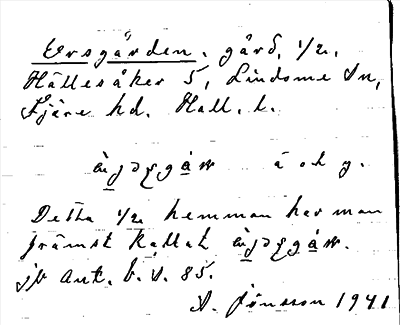 Ersgården, gård, 1/2,
Hällesåker 5, Lindome sn,
Fjäre hd. Hall. l.
ä och y.
Detta 1/2 hemman har man
främst kallat
jb Ant. b. s. 85.
A. Jönsson 1941